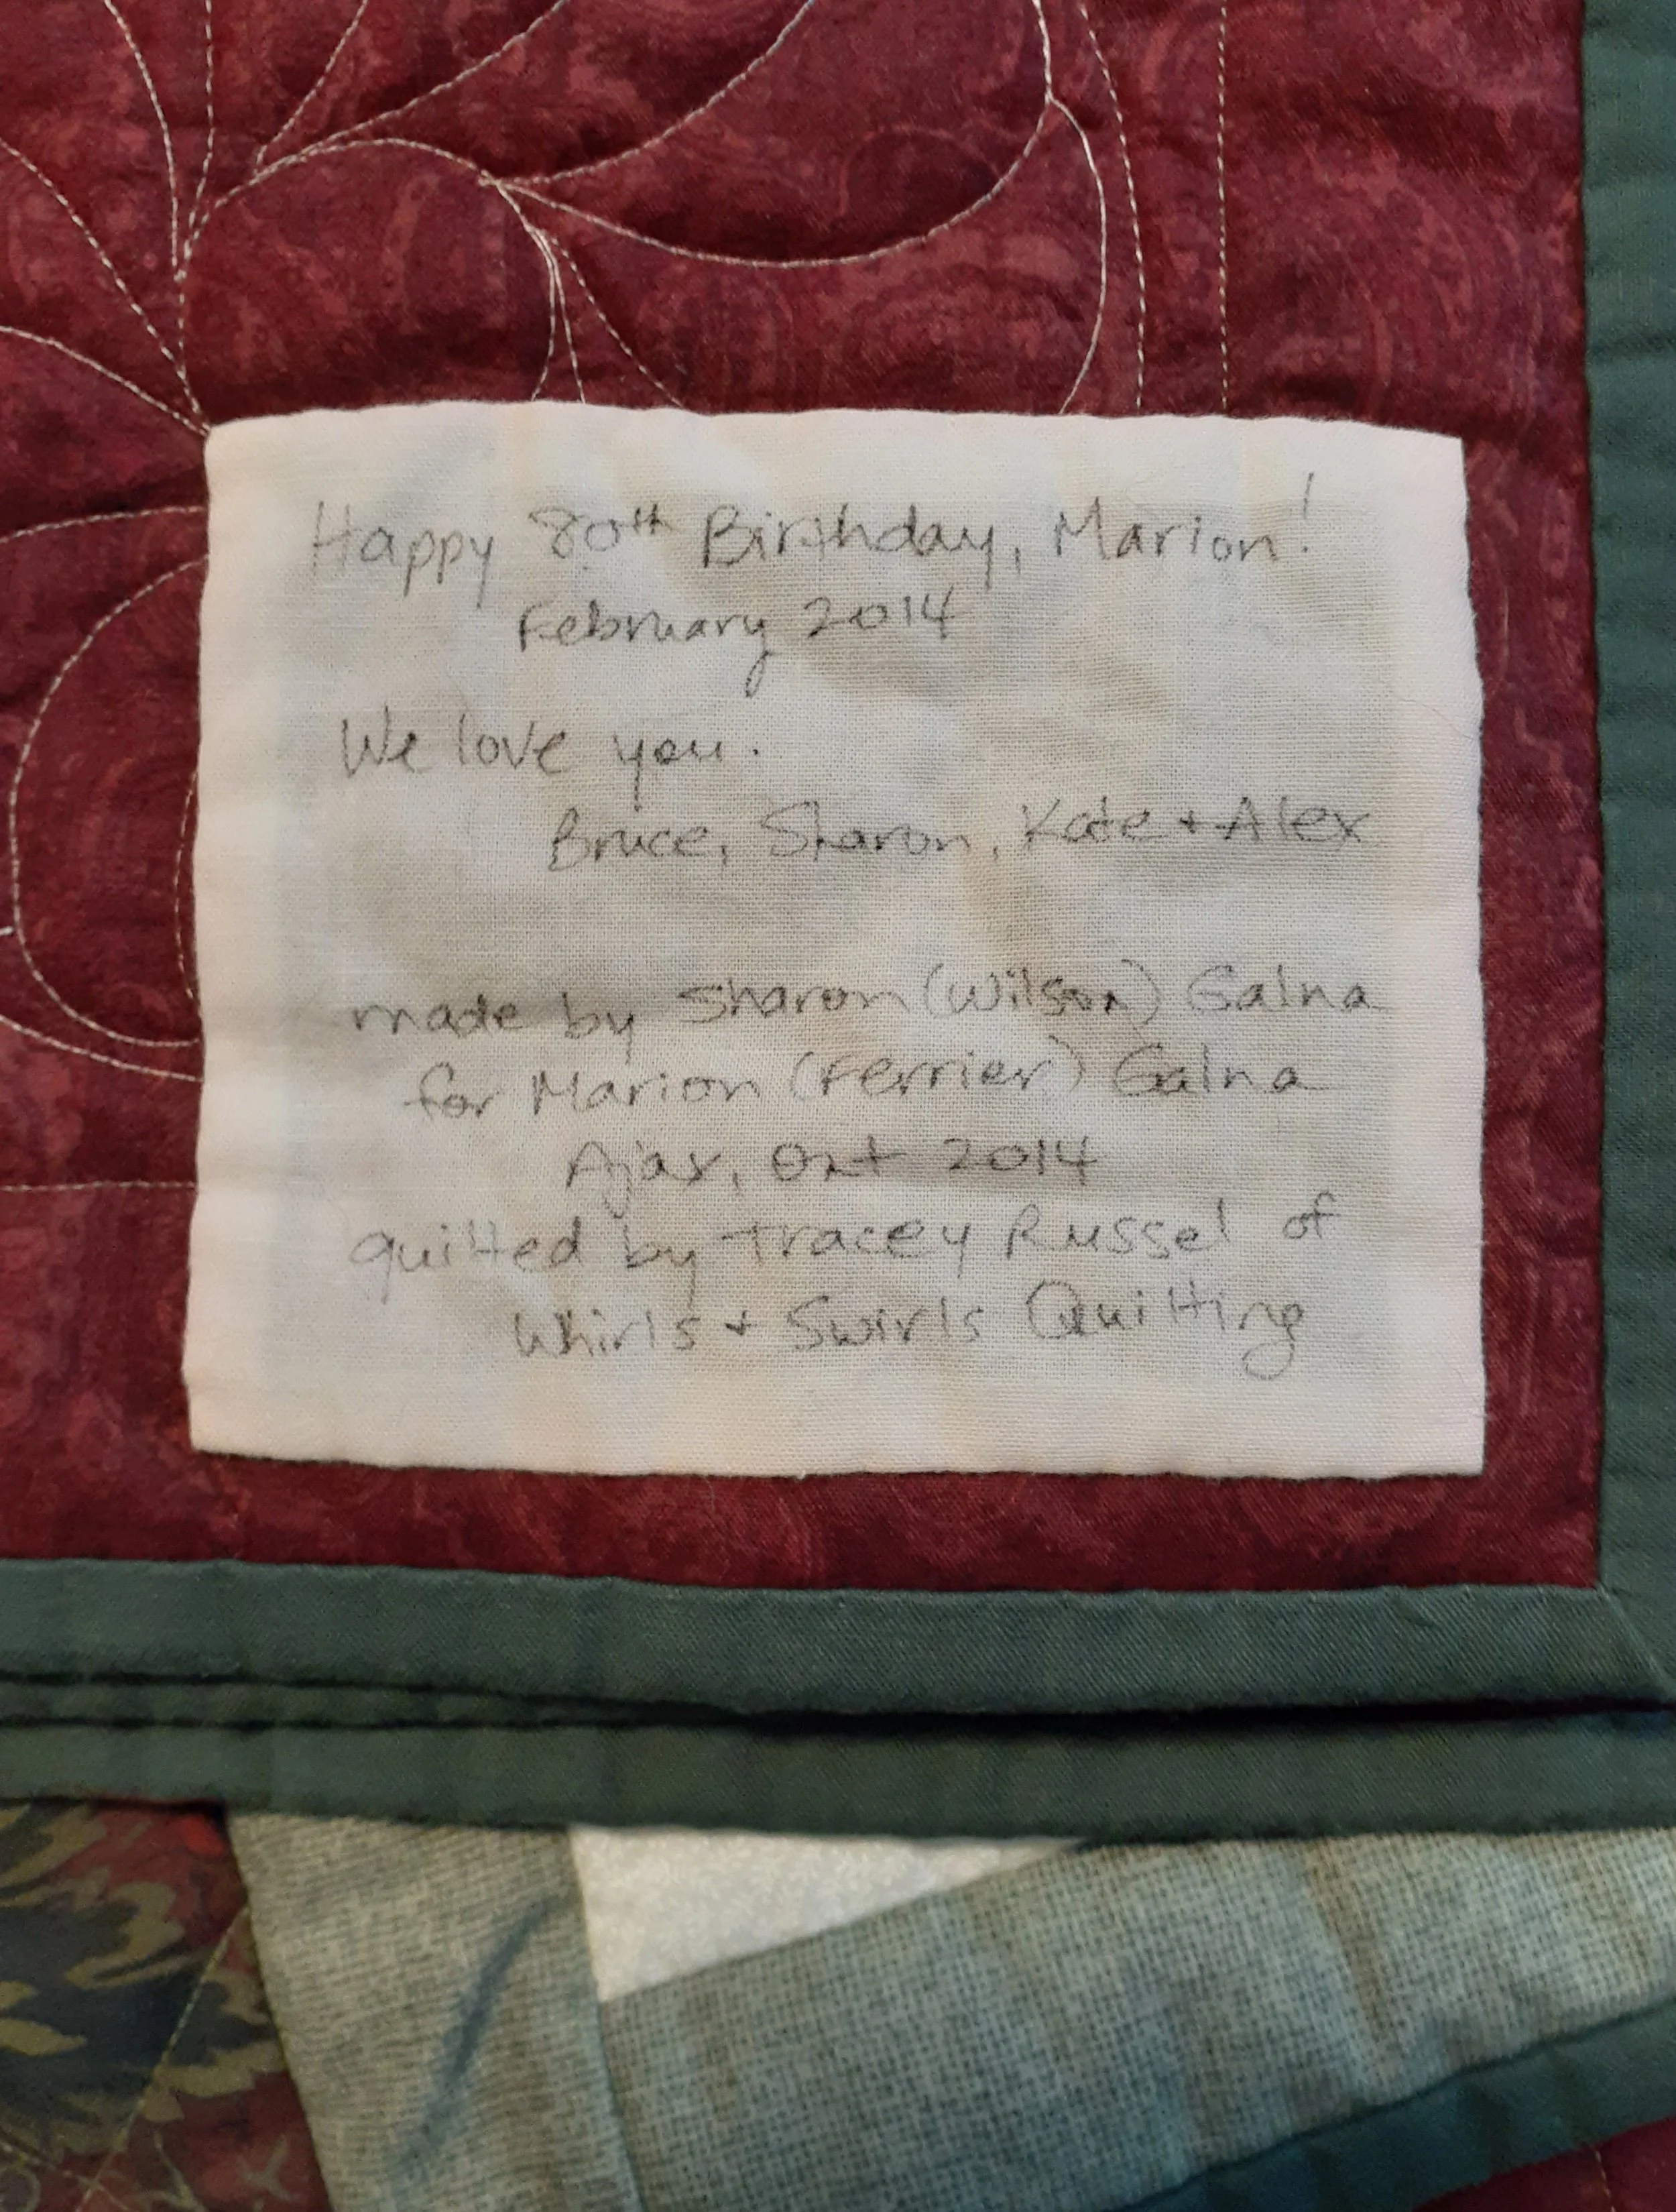 Happy 80th Birthday, Marion!
February 2014
We love you.
Bruce, Sharon, Kate + Alex
made by Sharon (Wilson) Galna
for Marion (Ferrier) Galna
Ajax, Ont 2014
quilted by Tracey Russel of
Whirls + Swirls Quilting